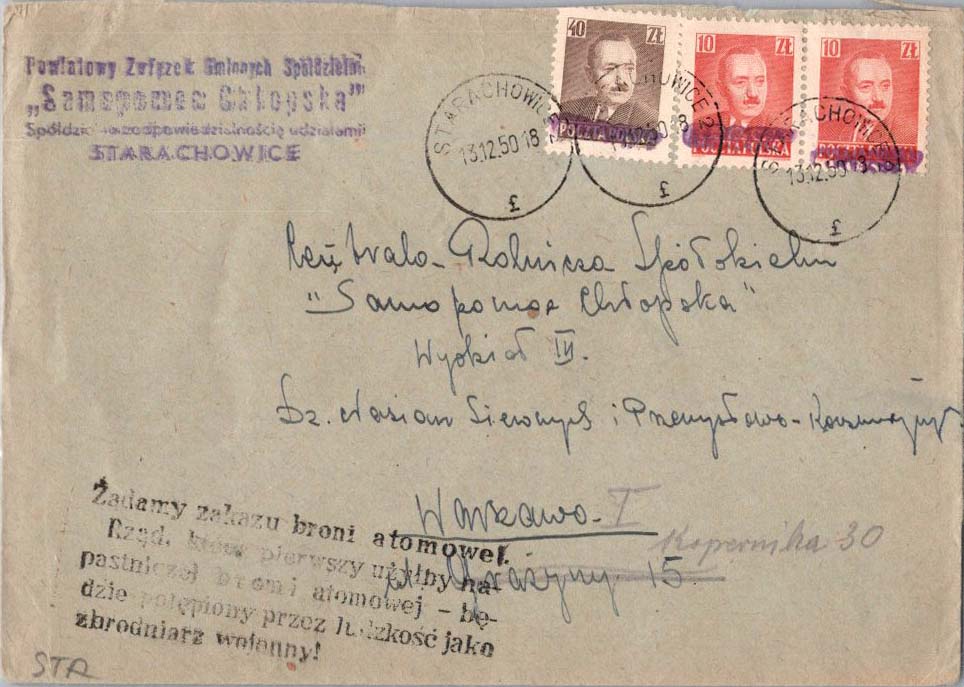 Powiatowy Związek Gminnych Spółdzielni
„Samopomoc Chłopska”
Spółdzielnia z odpowiedzialnością udziałami
STARACHOWICE
40 ZŁ
10 ZŁ
10 ZŁ
POCZTA POLSKA
POCZTA POLSKA
STARACHOWICE 2
13.12.50 18
3
STARACHOWICE 2
3
STARACHOWICE
13.12.50 18
3
Centrala Rolnicza Spółdzielni
"Samopomoc Chłopska"
Wydział IV.
Dz. Nasion Siewnych i Przemysłowo-
Warszawa I
Kopernika 30
ul. Grażyny 15
Żądamy zakazu broni atomowej.
Rząd, który pierwszy użyłby na-
pastniczej broni atomowej - bę-
dzie potępiony przez ludzkość jako
zbrodniarz wojenny!
STA